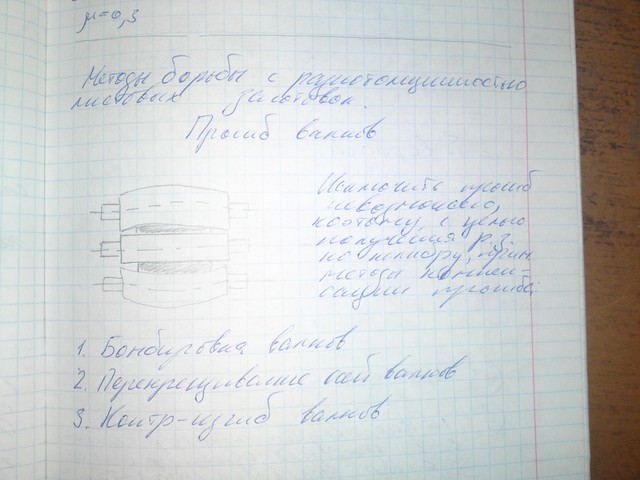 μ=0,3
Методы борьбы с разнотолщинностью
листовых заготовок.
Прогиб валков
Исключить прогиб
невозможно,
поэтому, с целью
получения р.з.
по толщ
методы компен-
сации прогиба:
1. Бомбировка валков
2. Перекрещивание осей валков
3. Контр-изгиб валков